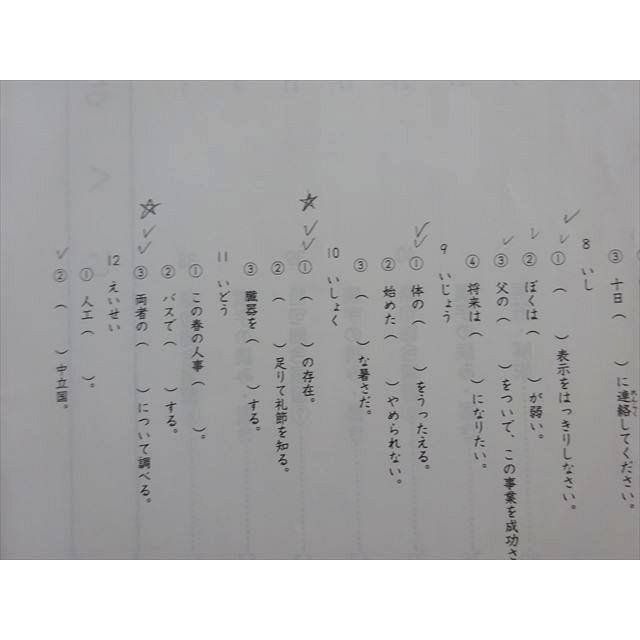 ③ 十日（　　）に連絡してください。
8 いし
①（　　）表示をはっきりしなさい。
② ぼくは（　　）が弱い。
③ 父の（　　）をついで、この事業を成功さ
④ 将来は（　　）になりたい。
9 いじょう
① 体の（　　）をうったえる。
② 始めた（　　）やめられない。
③（　　）な暑さだ。
10 いしょく
①（　　）の存在。
②（　　）足りて礼節を知る。
③ 臓器を（　　）する。
11 いどう
① この春の人事（　　）。
② バスで（　　）する。
③ 両者の（　　）について調べる。
12 えいせい
① 人工（　　）。
②（　　）中立国。